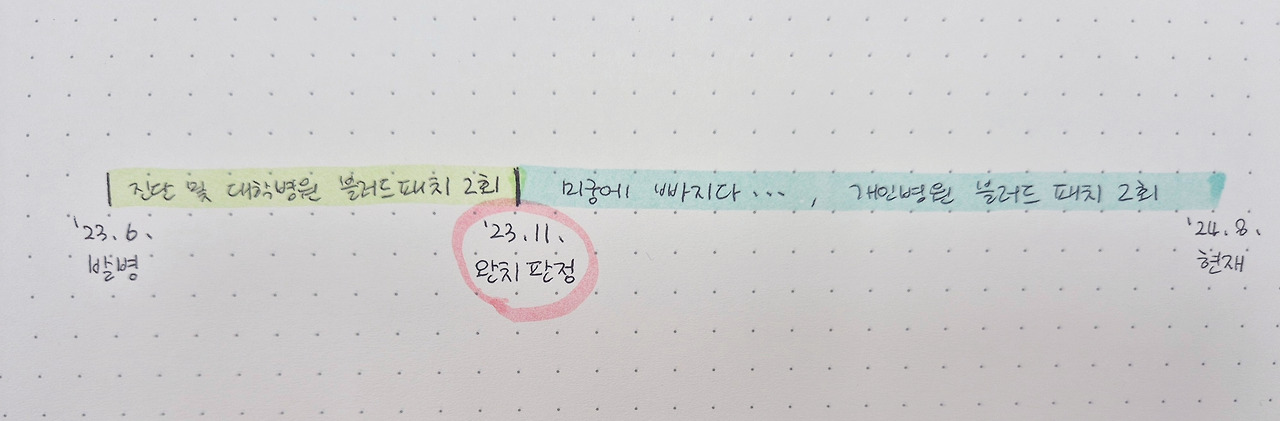 진단 및 대학병원 블러드패치 2회
미궁에 빠지다..., 개인병원 블러드 패치 2회
'23.6.
발병
'23.11.
완치 판정
'24.8.
현재